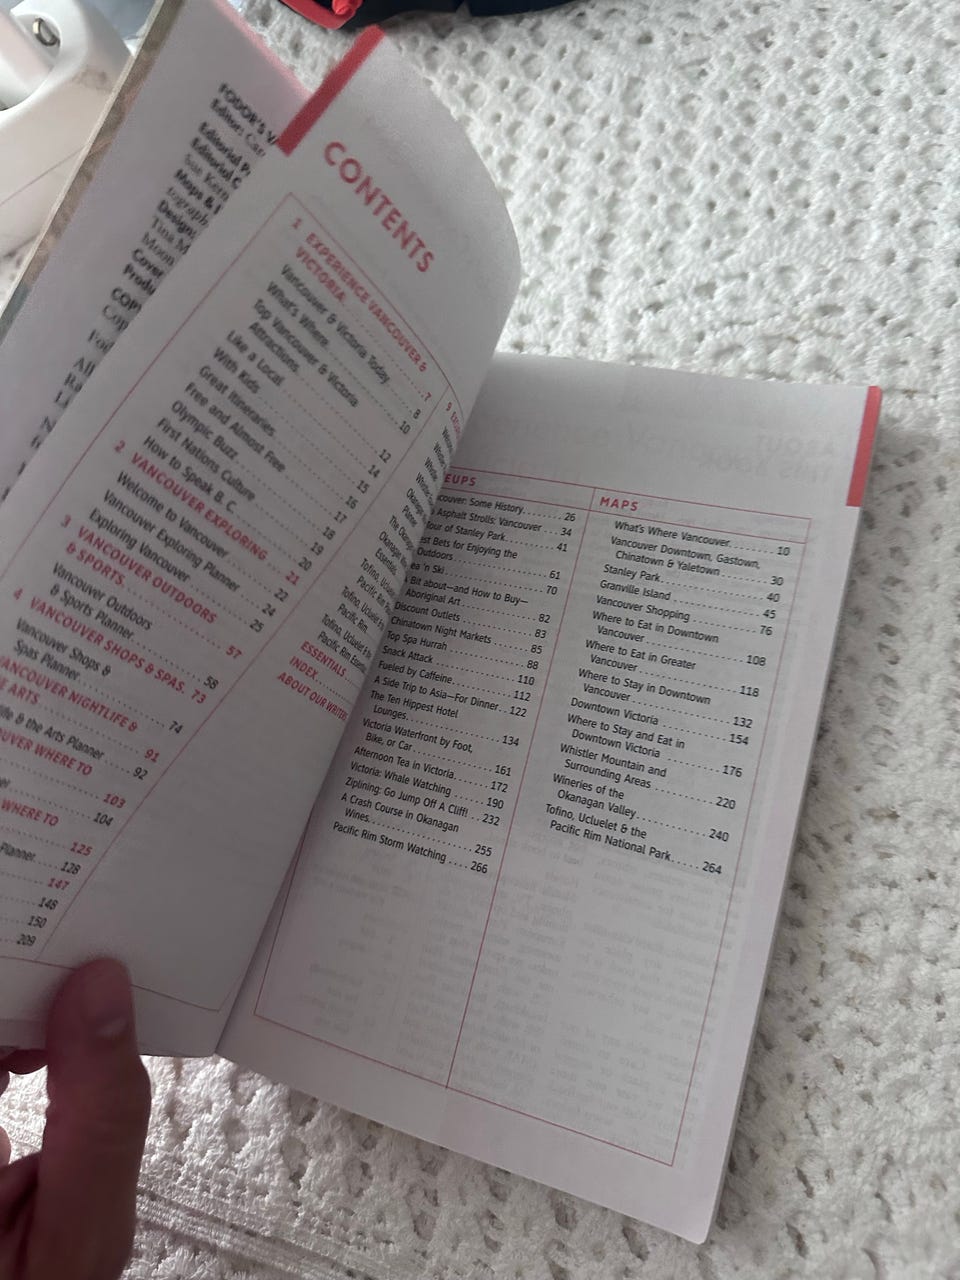 FODOR'S
Editor:
Editorial
Editorial
Maps &
Design:
CONTENTS
1 EXPERIENCE VANCOUVER &
VICTORIA. . . . . . . . 7
Vancouver & Victoria Today . . 8
What's Where. . . . . . . . 10
Top Vancouver & Victoria
Attractions. . . . . . . . 12
Like a Local . . . . . . . . 14
With Kids . . . . . . . . 15
Great Itineraries. . . . . . . . 16
Free and Almost Free . . . . . 17
Olympic Buzz . . . . . . . . 18
First Nations Culture . . . . . 19
How to Speak B. C. . . . . . . 20
2 VANCOUVER EXPLORING . . 21
Welcome to Vancouver. . . . . 22
Vancouver Exploring Planner . . 24
Exploring Vancouver . . . . . 25
3 VANCOUVER OUTDOORS
& SPORTS. . . . . . . . 57
Vancouver Outdoors
& Sports Planner . . . . . . 58
4 VANCOUVER SHOPS & SPAS. 73
Vancouver Shops &
Spas Planner. . . . . . . . 74
VANCOUVER NIGHTLIFE &
ARTS . . . . . . . . 91
& the Arts Planner . . . 92
WHERE TO
. . . . . 103
. . . . . 104
WHERE TO
. . . . . 125
Planner. . . . 128
. . . . . 147
. . . . . 148
. . . . . 150
. . . . . 209
9
ESSENTIALS
INDEX
ABOUT OUR WRITERS
EUPS
couver: Some History. . . . . . . 26
Asphalt Strolls: Vancouver . . . 34
Tour of Stanley Park. . . . . . . . 41
est Bets for Enjoying the
Outdoors . . . . . . . . 61
ea 'n Ski . . . . . . . . 70
Bit about—and How to Buy—
Aboriginal Art . . . . . . . . 82
Discount Outlets . . . . . . . . 83
Chinatown Night Markets . . . . 85
Top Spa Hurrah . . . . . . . . 88
Snack Attack . . . . . . . . 110
Fueled by Caffeine. . . . . . . . 112
A Side Trip to Asia—For Dinner. . 122
The Ten Hippest Hotel
Lounges. . . . . . . . 134
Victoria Waterfront by Foot,
Bike, or Car . . . . . . . . 161
Afternoon Tea in Victoria. . . . . 172
Victoria: Whale Watching . . . . . 190
Ziplining: Go Jump Off A Cliff! . . 232
A Crash Course in Okanagan
Wines. . . . . . . . 255
Pacific Rim Storm Watching . . . . 266
MAPS
What's Where Vancouver. . . . . . . 10
Vancouver Downtown, Gastown,
Chinatown & Yaletown . . . . . . 30
Stanley Park . . . . . . . . 40
Granville Island . . . . . . . . 45
Vancouver Shopping . . . . . . . . 76
Where to Eat in Downtown
Vancouver . . . . . . . . 108
Where to Eat in Greater
Vancouver . . . . . . . . 118
Where to Stay in Downtown
Vancouver . . . . . . . . 132
Downtown Victoria . . . . . . . . 154
Where to Stay and Eat in
Downtown Victoria . . . . . . . . 176
Whistler Mountain and
Surrounding Areas . . . . . . . . 220
Wineries of the
Okanagan Valley. . . . . . . . 240
Tofino, Ucluelet & the
Pacific Rim National Park. . . . . 264